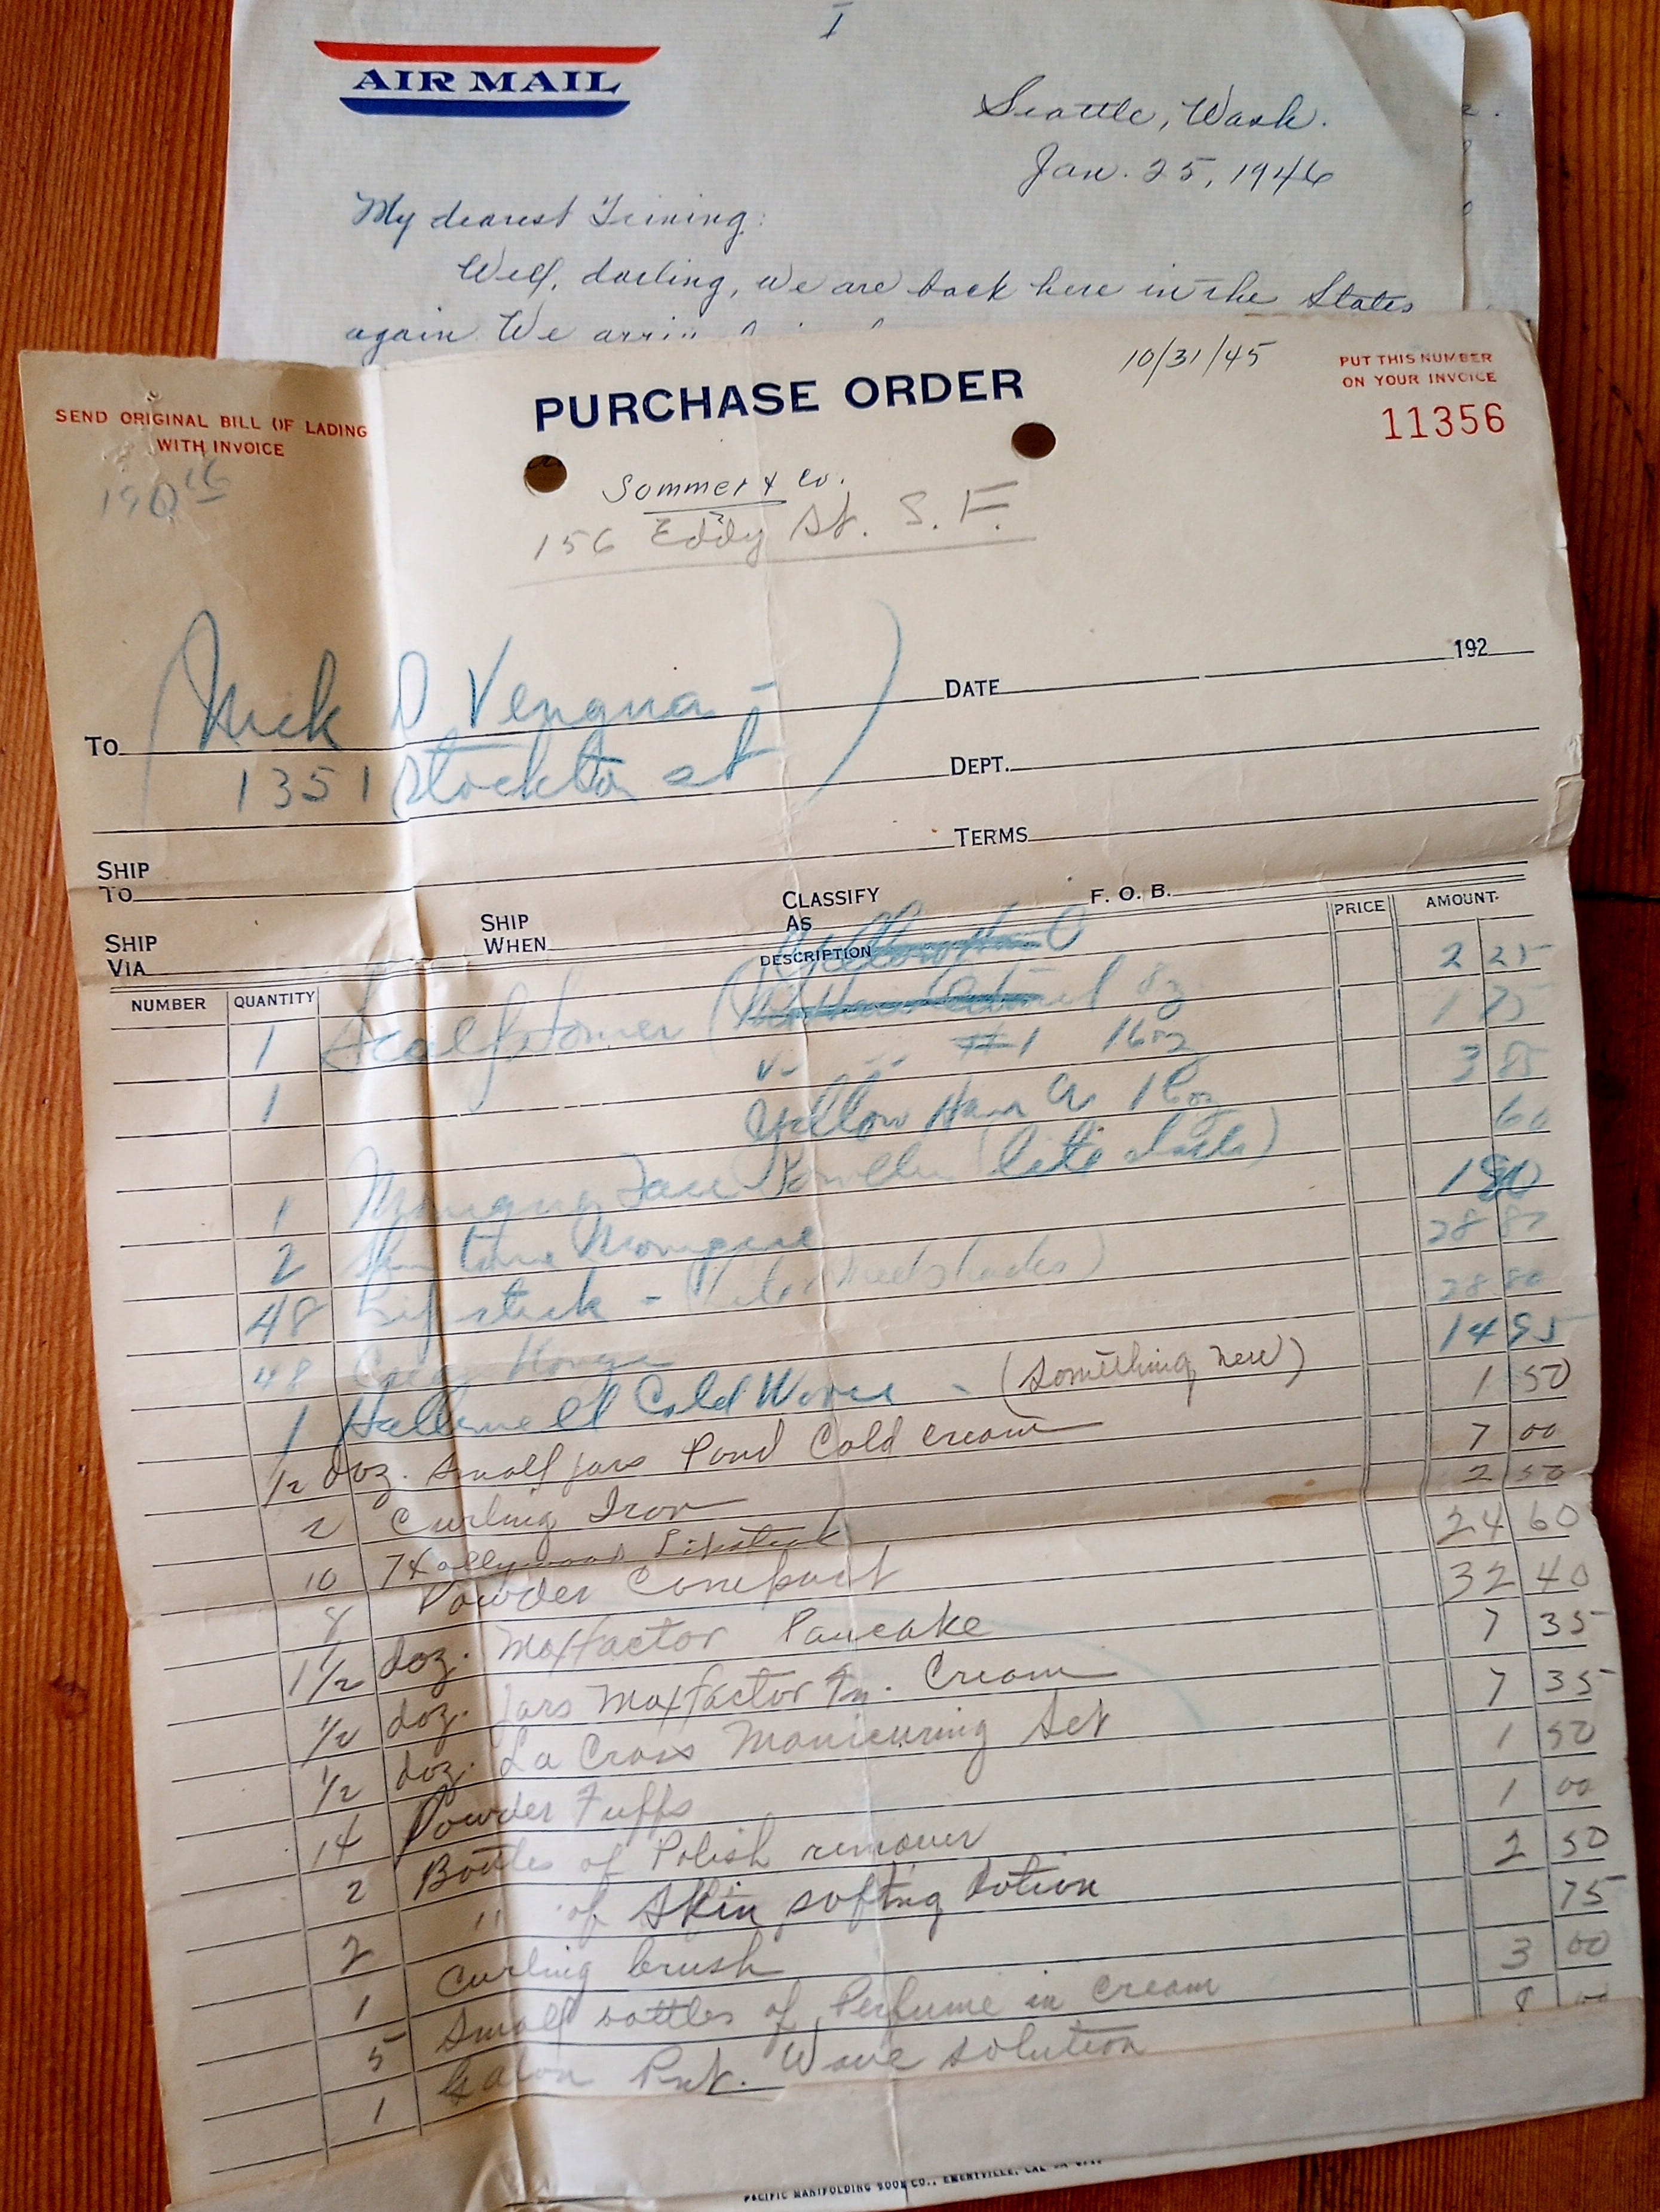 I
AIR MAIL
Seattle, Wash.
Jan. 25, 1946
My dearest Trining:
Well, darling, we are back here in the States
again. We
PURCHASE ORDER
10/31/45
PUT THIS NUMBER
ON YOUR INVOICE
11356
SEND ORIGINAL BILL OF LADING
WITH INVOICE
Sommer & Co.
156 Eddy St. S. F.
192
DATE
TO (Nick D Vengua
1351 Stockton st)
DEPT.
TERMS
SHIP
TO
SHIP
VIA
SHIP
WHEN
CLASSIFY
AS
F. O. B.
NUMBER QUANTITY DESCRIPTION PRICE AMOUNT
1 8 oz 2 25
1 #1 16 oz 1 75
Yellow 16 oz 3 85
1 Face Powder 60
2
48 Lipstick - 28 80
48 28 80
1 Cold Wave - (something new) 14 95
1/2 doz. small jars Pond Cold cream 1 50
2 Curling Iron 7 00
10 Hollywood Lipstick 2 50
8 Powder Compact 24 60
1 1/2 doz. Maxfactor Pancake 32 40
1/2 doz. Jars Maxfactor Cream 7 35
1/2 doz. La Cross Manicuring Set 7 35
14 Powder Fuffs 1 50
2 Bottles of Polish remover 1 00
2 " of Skin softing lotion 2 50
1 Curling brush 75
5 Small bottles of Perfume in cream 3 00
1 Galon Wave solution
PACIFIC MANIFOLDING BOOK CO., EMERYVILLE, CAL